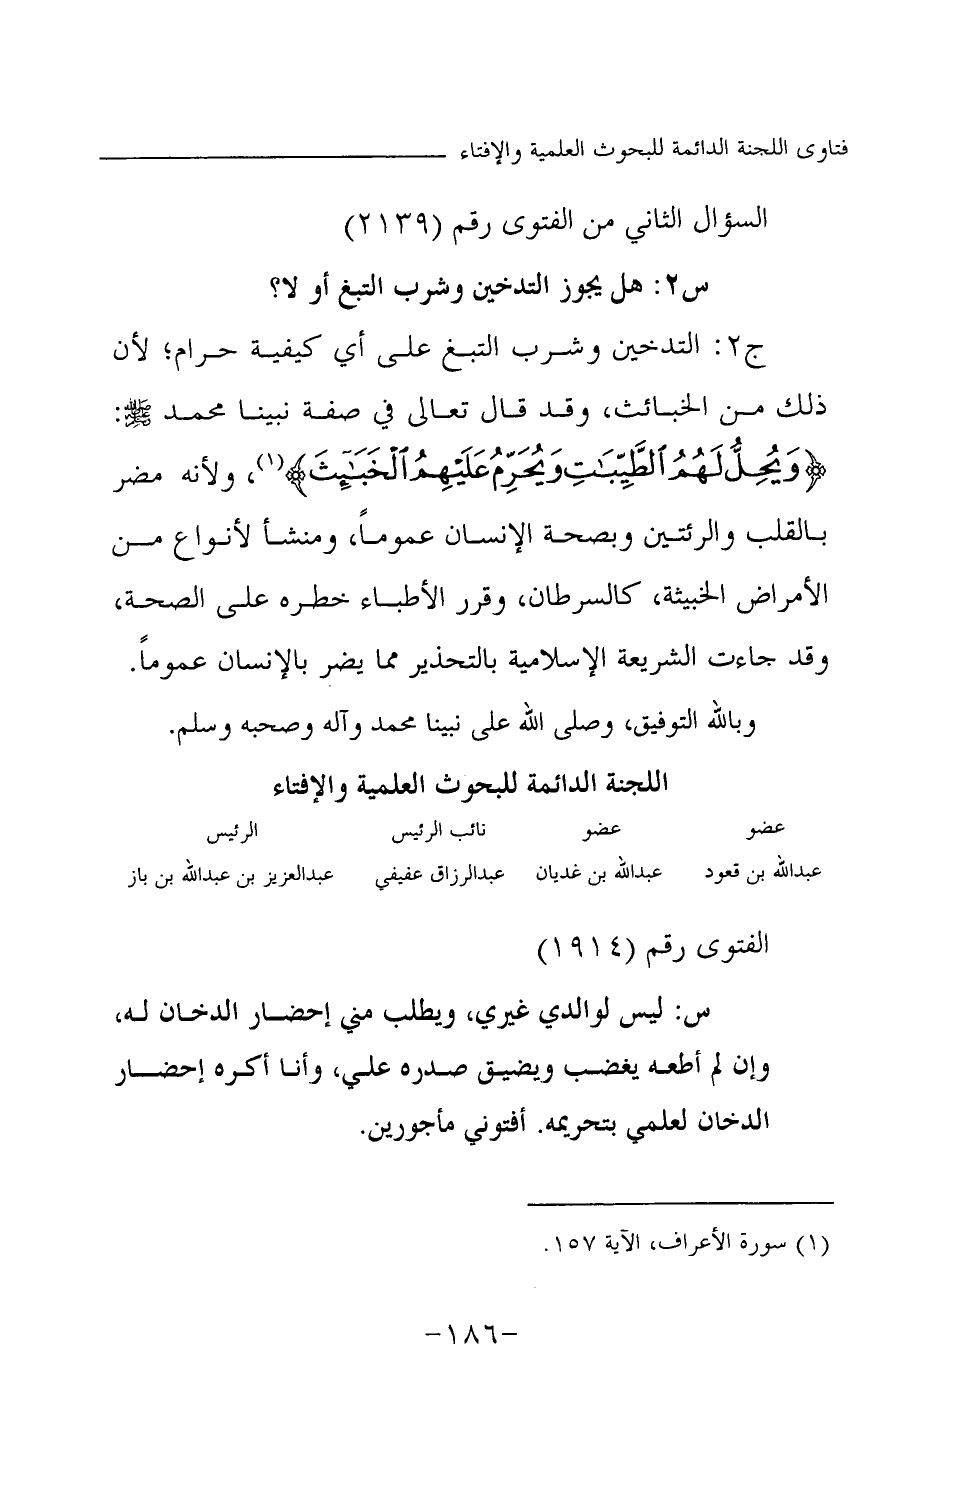 فتاوى اللجنة الدائمة للبحوث العلمية والإفتاء
السؤال الثاني من الفتوى رقم (٢١٣٩)
س٢: هل يجوز التدخين وشرب التبغ أو لا؟
ج٢: التدخين وشرب التبغ على أي كيفية حرام؛ لأن
ذلك من الخبائث، وقد قال تعالى في صفة نبينا محمد ﷺ:
﴿وَيُحِلُّ لَهُمُ ٱلطَّيِّبَٰتِ وَيُحَرِّمُ عَلَيْهِمُ ٱلْخَبَٰٓئِثَ﴾(١)، ولأنه مضر
بالقلب والرئتين وبصحة الإنسان عموماً، ومنشأ لأنواع من
الأمراض الخبيثة، كالسرطان، وقرر الأطباء خطره على الصحة،
وقد جاءت الشريعة الإسلامية بالتحذير مما يضر بالإنسان عموماً.
وبالله التوفيق، وصلى الله على نبينا محمد وآله وصحبه وسلم.
اللجنة الدائمة للبحوث العلمية والإفتاء
عضو عضو نائب الرئيس الرئيس
عبدالله بن قعود عبدالله بن غديان عبدالرزاق عفيفي عبدالعزيز بن عبدالله بن باز
الفتوى رقم (١٩١٤)
س: ليس لوالدي غيري، ويطلب مني إحضار الدخان له،
وإن لم أطعه يغضب ويضيق صدره علي، وأنا أكره إحضار
الدخان لعلمي بتحريمه. أفتوني مأجورين.
(١) سورة الأعراف، الآية ١٥٧.
-١٨٦-